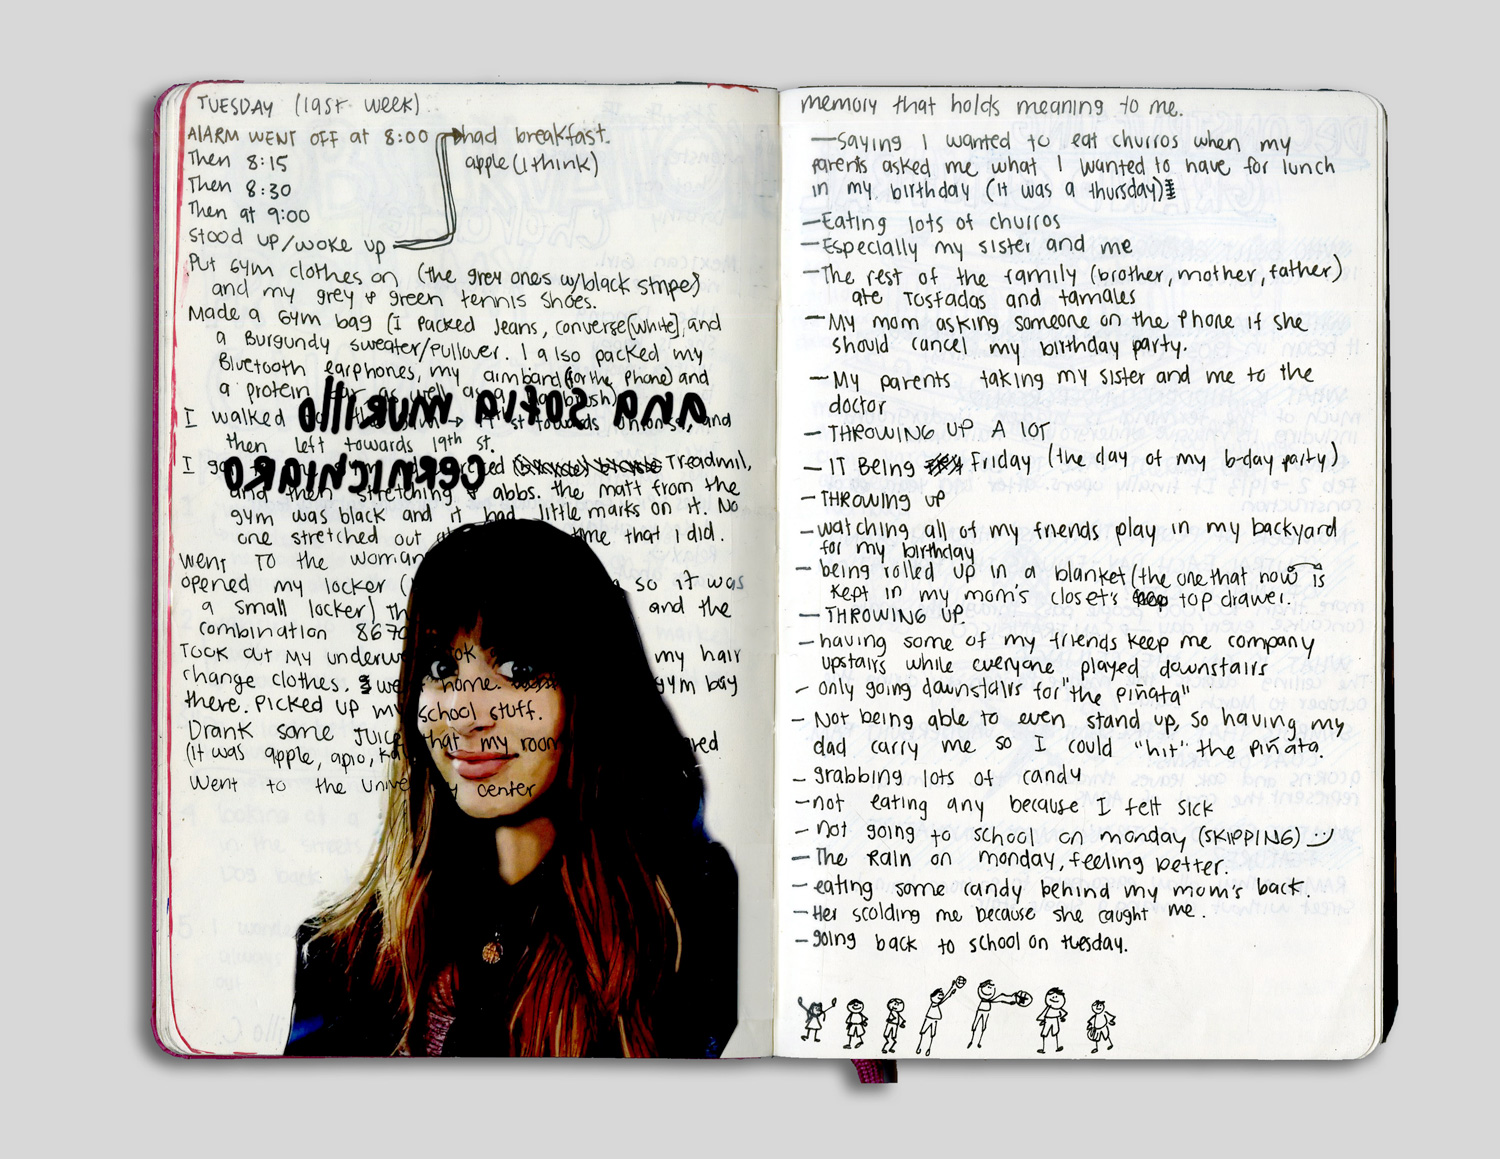 TUESDAY (last week)
AlARM WENT OFF at 8:00
had breakfast.
apple (I think)
Then 8:15
Then 8:30
Then at 9:00
Stood up/woke up
Put Gym clothes on (the grey ones w/black stripe)
and my grey & green tennis shoes.
Made a Gym bag (I packed Jeans, converse [white], and
a Burgundy sweater/Pullover. I also packed my
Bluetooth earphones, my armband (for the Phone) and
a protein bar as well as a hairbrush)
ana sofia murillo
I walked to the st towards and
then left towards 19th st.
I Treadmil,
cernichiaro
and then stretching & abbs. the matt from the
gym was black and it had little marks on it. No
one stretched out time that I did.
Went TO the woman
opened my locker so it was
a small locker) and the
combination 8670
Took out my underw my hair
change clothes. home. gym bag
there. Picked up my school stuff.
Drank some juice that my room
(It was apple, apio,
Went to the center
memory that holds meaning to me.
—Saying I wanted to eat churros when my
parents asked me what I wanted to have for lunch
in my birthday (it was a thursday)
—Eating lots of churros
—Especially my sister and me
—The rest of the family (brother, mother, father)
ate Tostadas and tamales
—My mom asking someone on the Phone if she
should cancel my birthday party.
—My parents taking my sister and me to the
doctor
—THROWING UP A lOT
—IT Being Friday (the day of my b-day party)
—THROWING UP
—watching all of my friends play in my backyard
for my birthday
—being rolled up in a blanket (the one that now is
kept in my mom's closet's top drawer.
—THROWING UP.
—having some of my friends keep me company
upstairs while everyone played downstairs
—only going downstairs for "the piñata"
—Not being able to even stand up, so having my
dad carry me so I could "hit" the Piñata.
—grabbing lots of candy
—not eating any because I felt sick
—Not going to school on monday (SKIPPING)
—The Rain on monday, feeling better.
—eating some candy behind my mom's back.
—Her scolding me because she caught me.
—going back to school on tuesday.